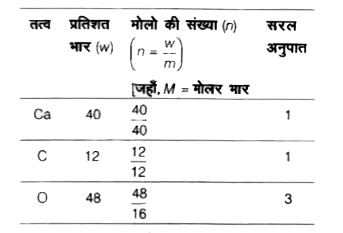 तत्व प्रतिशत भार (w) मोलो की संख्या (n) (n = w/m) [जहाँ, M = मोलर भार सरल अनुपात
Ca 40 40/40 1
C 12 12/12 1
O 48 48/16 3